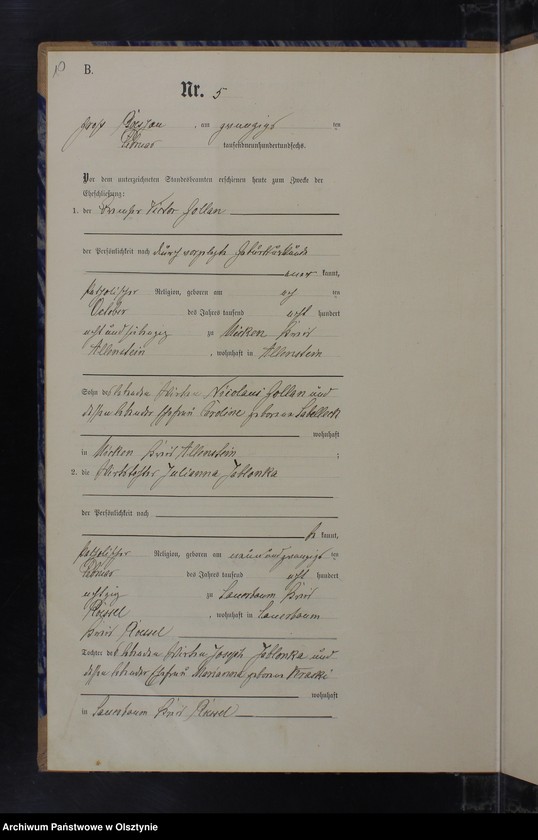 10
B.
Nr. 5
Groß Roessau, am zwanzigs ten
Februar tausendneunhundertundsechs.
Vor dem unterzeichneten Standesbeamten erschienen heute zum Zwecke der
Eheschließung:
1. der Victor Gollan
der Persönlichkeit nach durch vorgelegte Geburtsurkunde
aner kannt,
katholischer Religion, geboren am ach ten
October des Jahres tausend acht hundert
achtundsiebenzig zu Micken Kreis
Allenstein, wohnhaft in Allenstein
Sohn des lebenden Wirthen Nicolaus Gollan und
dessen lebender Ehefrau Caroline geborene
wohnhaft
in Micken Kreis Allenstein;
2. die Wirthstochter Julianna Jablonka
der Persönlichkeit nach
be kannt,
katholischer Religion, geboren am neunundzwanzigs ten
Februar des Jahres tausend acht hundert
achtzig zu Lauterbaum Kreis
Roessel, wohnhaft in
Kreis Roessel
Tochter des lebenden Wirthen Joseph Jablonka und
dessen lebender Ehefrau Marianna geborene
wohnhaft
in Kreis Roessel
Archiwum Państwowe w Olsztynie